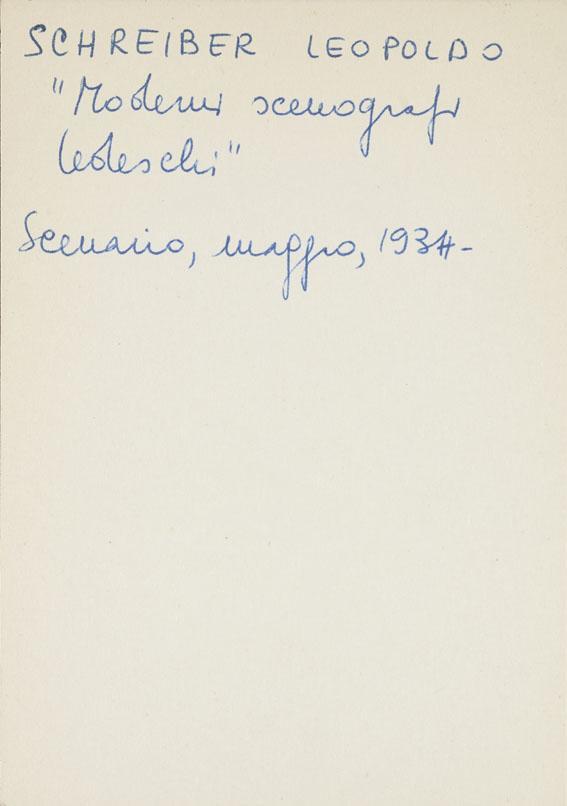 SCHREIBER LEOPOLDO
"Moderni scenografi
tedeschi"
Scenario, maggio, 1934-